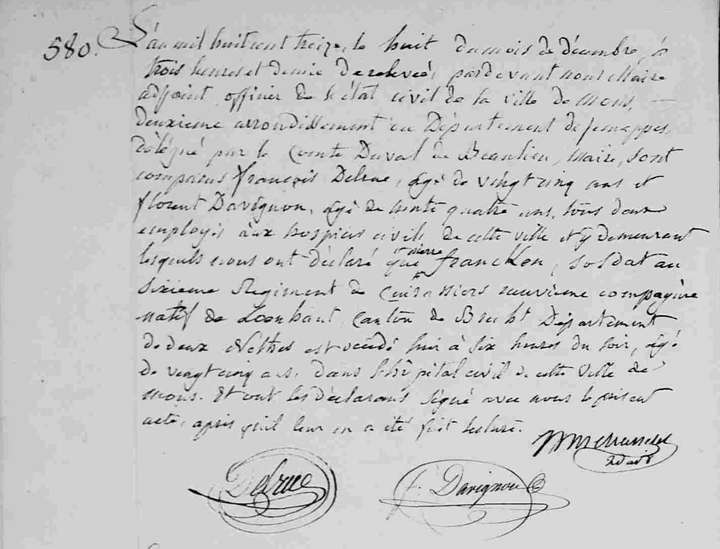 580.
L'an mil huit cent treize, le huit du mois de décembre, à
trois heures et demie de relevée, pardevant nous Maire
adjoint officier de l'état civil de la ville de Mons
deuxième arrondissement du Département de Jemappes
délégué par le Comte Duval de Beaulieu, Maire, sont
comparus françois Delrue, âgé de vingt cinq ans et
florent Davignon, âgé de trente quatre ans, tous deux
employés aux hospices civils de cette ville et y demeurant
lesquels nous ont déclaré que pierre francken, soldat au
sixième Régiment de Cuirassiers neuvième compagnie
natif de Loenhout Canton de Brecht Département
de deux Nèthes est décédé hier à six heures du soir, âgé
de vingt cinq ans. Dans l'hôpital civil de cette ville de
Mons. Et ont les déclarans signé avec nous le présent
acte, après qu'il leur en a été fait lecture.
Delrue
f. Davignon